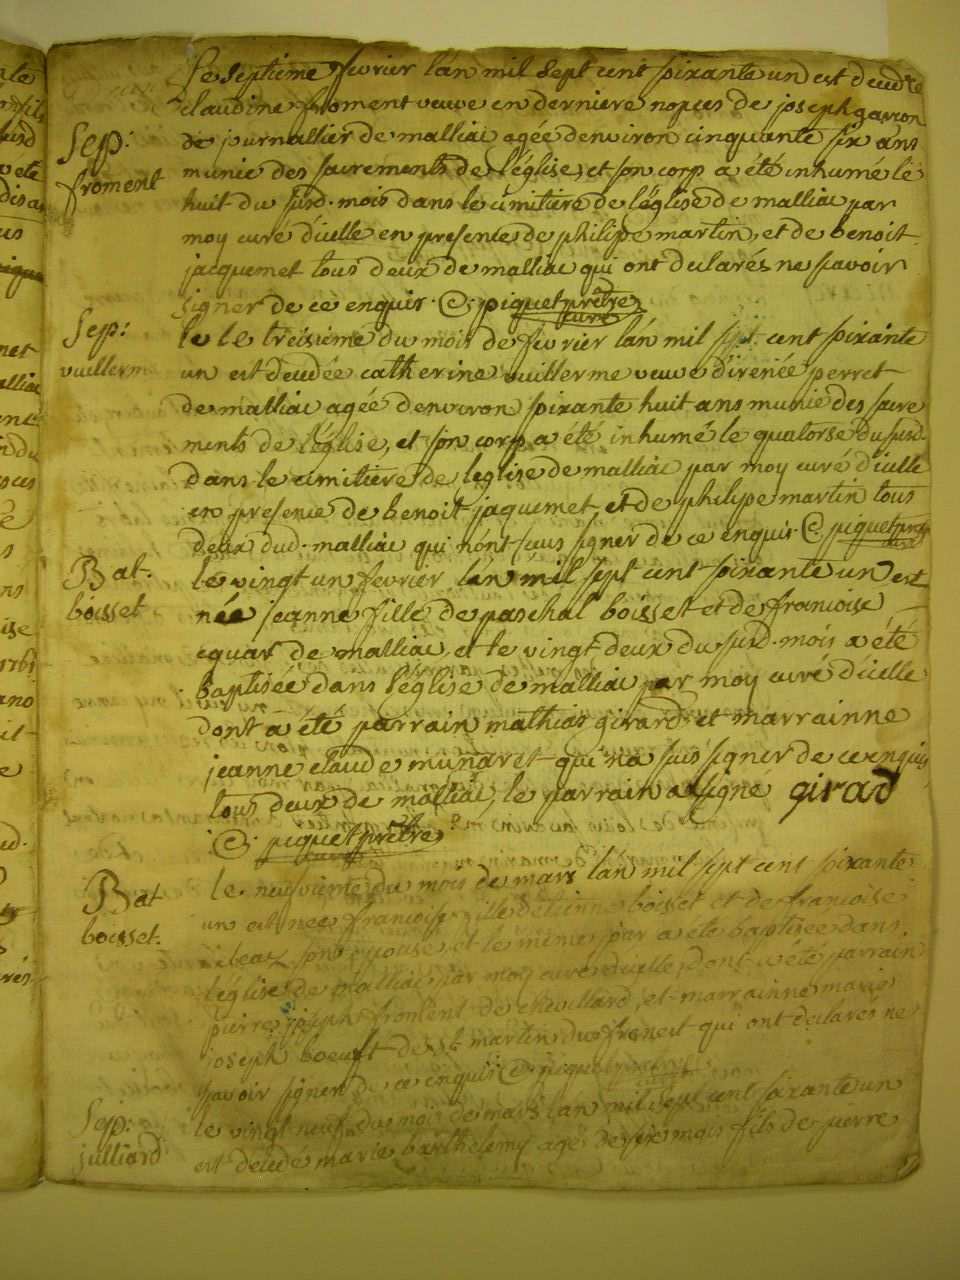 Sep:
froment
Le septieme fevrier lan mil sept cent soixante un est decedée
claudine froment veuve en derniere nopces de joseph garron
de journallier de malliac agée denviron cinquante six ans
munie des sacrements de l'église, et son corp a été inhumé le
huit du susd. mois dans le cimitiere de l'église de malliac par
moy curé d'icelle en presence de philipe martin, et de benoit
jacquemet tous deux de malliac qui ont declarés ne savoir
signer de ce enquis. piquet prêtre
curé
Sep:
vuillerme
le le treisieme du mois de fevrier lan mil sept cent soixante
un est decedée catherine vuillerme veuve d'irenée perret
de malliac agée denviron soixante huit ans munie des sacre
ments de l'église, et son corp a été inhumé le quatorse du susd.
dans le cimitiere de leglise de malliac par moy curé d'icelle
en presence de benoit jaquemet, et de philipe martin tous
deux dud. malliac qui n'ont sçus signer de ce enquis. piquet prêtre
curé
Bat.
boisset
le vingt un fevrier lan mil sept cent soixante un est
née jeanne fille de paschal boisset et de francoise
cquar de malliac, et le vingt deux du susd. mois a été
baptisée dans l'église de malliac par moy curé d'icelle
dont a été parrain mathias girard et marrainne
jeanne claude munaret qui n'a sçus signer de ce enquis
tous deux de malliac, le parrain a signé girad
piquet prêtre
curé
Bat
boisset.
le neufvieme du mois de mars lan mil sept cent soixante
un est née francoise fille détienne boisset et de francoise
son epouse, et le même jour a été baptisée dans
l'église de malliac par moy curé d'icelle, dont a été parrain
pierre joseph froment de chevillard, et marrainne marie
joseph boeuf de st martin du frenet qui ont declarés ne
savoir signer de ce enquis piquet prêtre
curé
Sep:
julliard
le vingt neuf du mois de mars lan mil sept cent soixante un
est decedé marie barthelemy agé de six mois fils de pierre